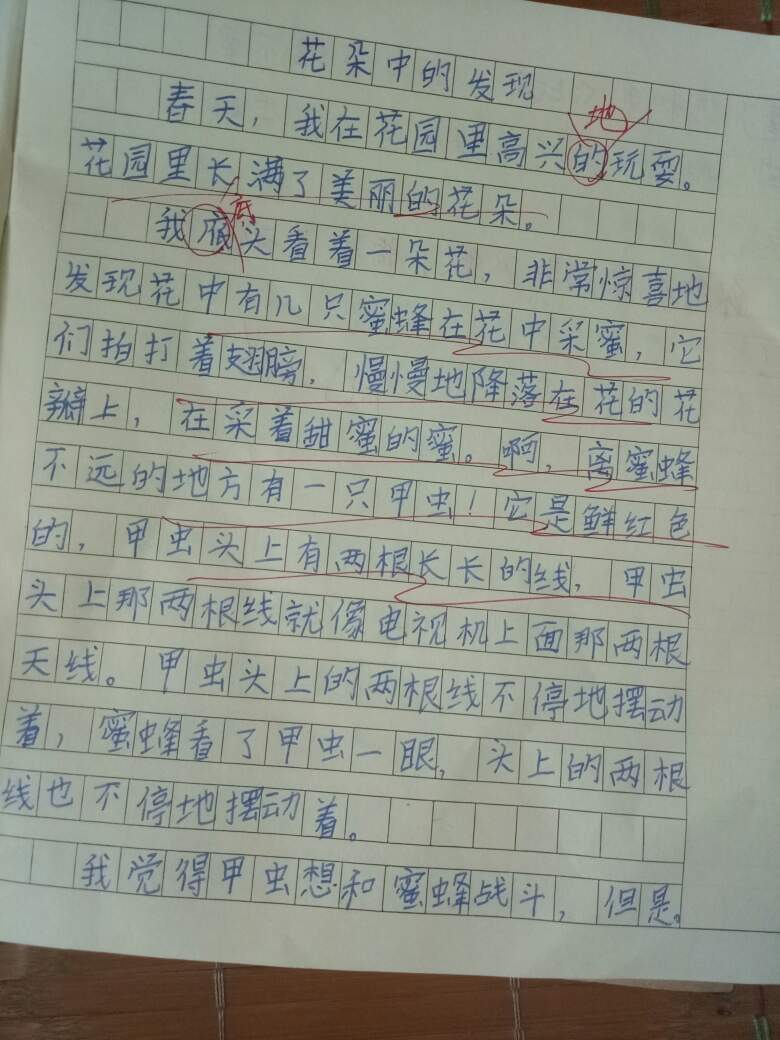 花朵中的发现
地
春天，我在花园里高兴的玩耍。
花园里长满了美丽的花朵。
底
我底头看着一朵花，非常惊喜地
发现花中有几只蜜蜂在花中采蜜，它
们拍打着翅膀，慢慢地降落在花的花
瓣上，在采着甜蜜的蜜。啊，离蜜蜂
不远的地方有一只甲虫！它是鲜红色
的，甲虫头上有两根长长的线，甲虫
头上那两根线就像电视机上面那两根
天线。甲虫头上的两根线不停地摆动
着，蜜蜂看了甲虫一眼，头上的两根
线也不停地摆动着。
我觉得甲虫想和蜜蜂战斗，但是。